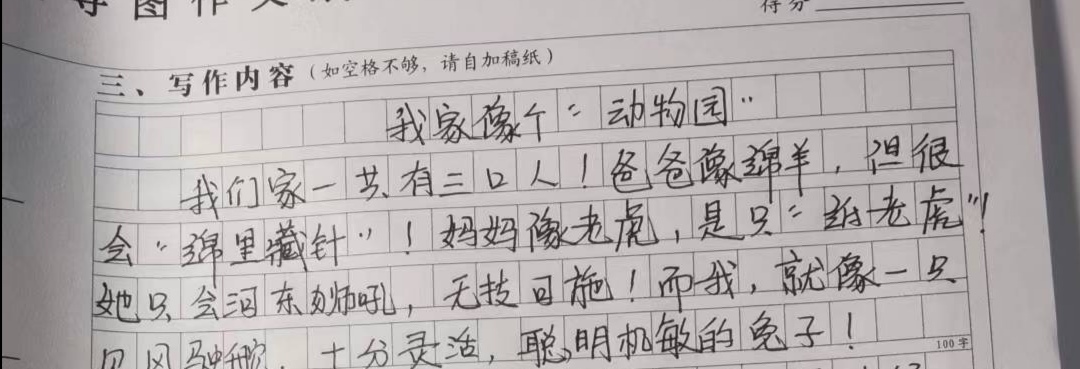 导图作文
得分
三、写作内容(如空格不够,请自加稿纸)
我家像个“动物园”
我们家一共有三口人!爸爸像绵羊,但很
会“绵里藏针”!妈妈像老虎,是只“纸老虎”!
她只会河东狮吼,无技可施!而我,就像一只
见风驶舵,十分灵活,聪明机敏的兔子!
100字